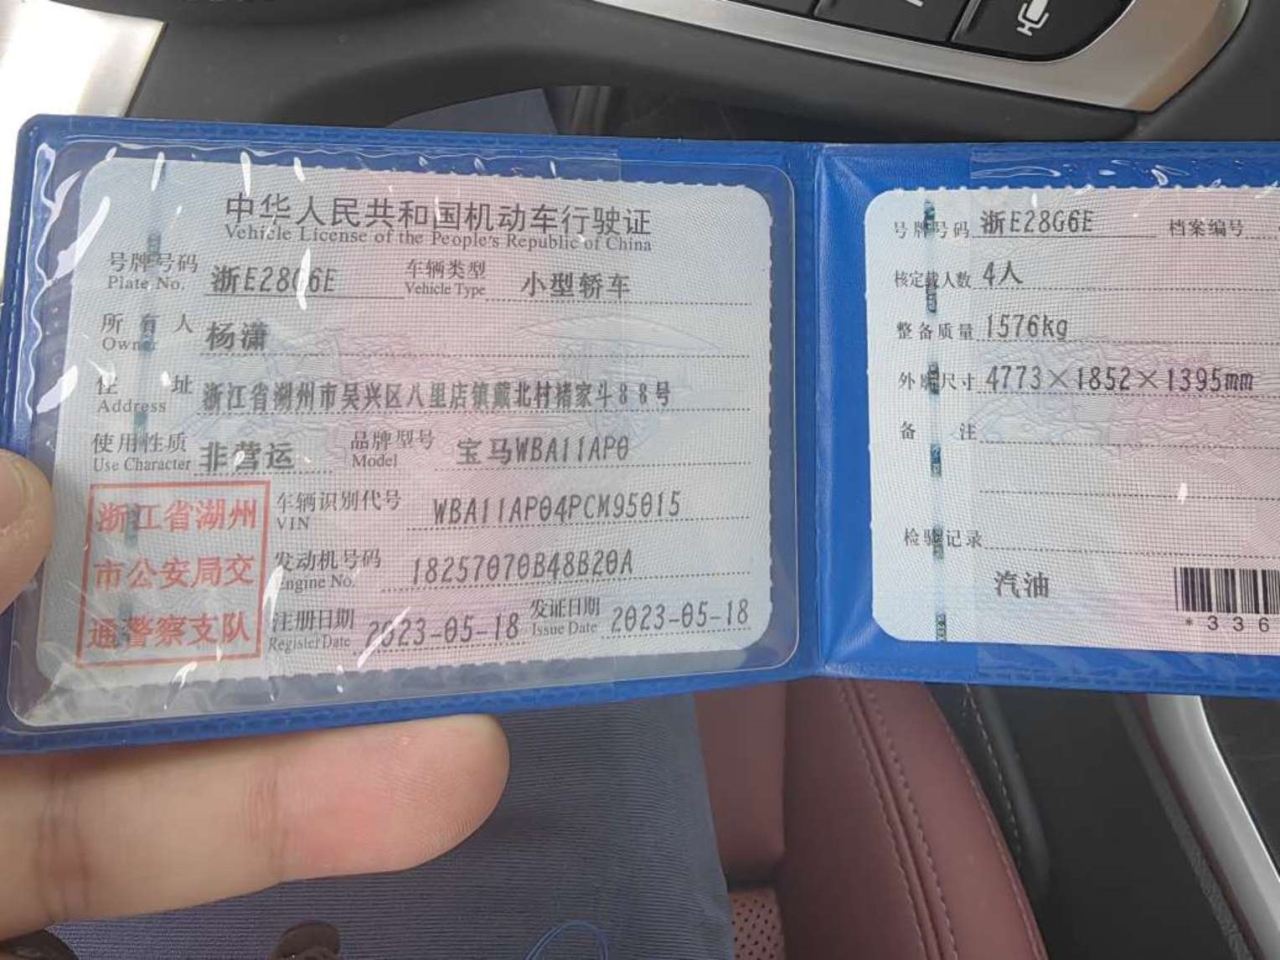 中华人民共和国机动车行驶证
Vehicle License of the People's Republic of China
号牌号码 浙E28G6E 车辆类型 小型轿车
Plate No. Vehicle Type
所有人 杨潇
Owner
住址 浙江省湖州市吴兴区八里店镇戴北村褚家斗88号
Address
使用性质 非营运 品牌型号 宝马WBA11AP0
Use Character Model
浙江省湖州
市公安局交
通警察支队
车辆识别代号 WBA11AP04PCM95015
VIN
发动机号码 18257070B48B20A
Engine No.
注册日期 2023-05-18 发证日期 2023-05-18
Register Date Issue Date
号牌号码 浙E28G6E 档案编号
核定载人数 4人
整备质量 1576kg
外廓尺寸 4773×1852×1395mm
备注
检验记录
汽油
*336